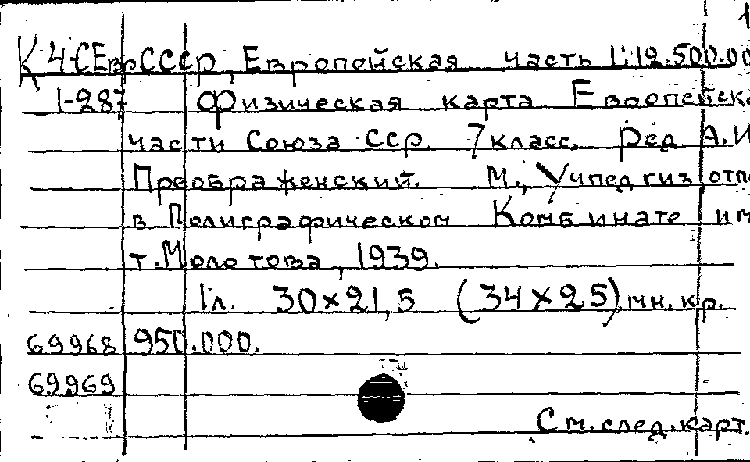 К 4-СЕвр СССР, Европейская часть 1:12.500.00
1-287 Физическая карта Европейска
части Союза ССР. 7 класс. Ред А.И
Преображенский. М., Учпедгиз, отпе
в Полиграфическом Комбинате им
т. Молотова, 1939.
1 л. 30×21,5 (34×25) мн. кр.
69968 950.000.
69969
См. след. карт.